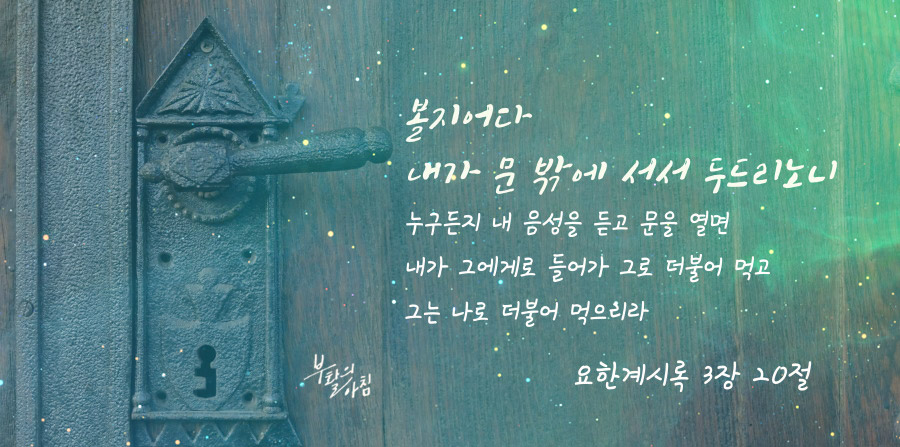 볼지어다
내가 문 밖에 서서 두드리노니
누구든지 내 음성을 듣고 문을 열면
내가 그에게로 들어가 그로 더불어 먹고
그는 나로 더불어 먹으리라
부활의
아침
요한계시록 3장 20절